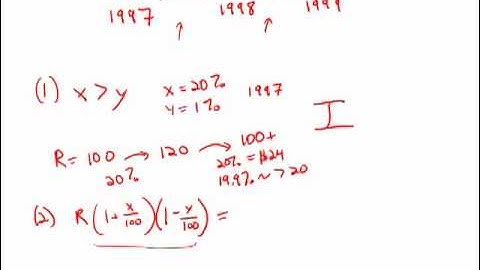 1997 1998 1999
(1) x > y x = 20% 1997
y = 1%
I
R = 100 → 120 → 100+
20% 20% = 24
19.9% ~ > 20
(2) R(1 + x/100)(1 - y/100) =